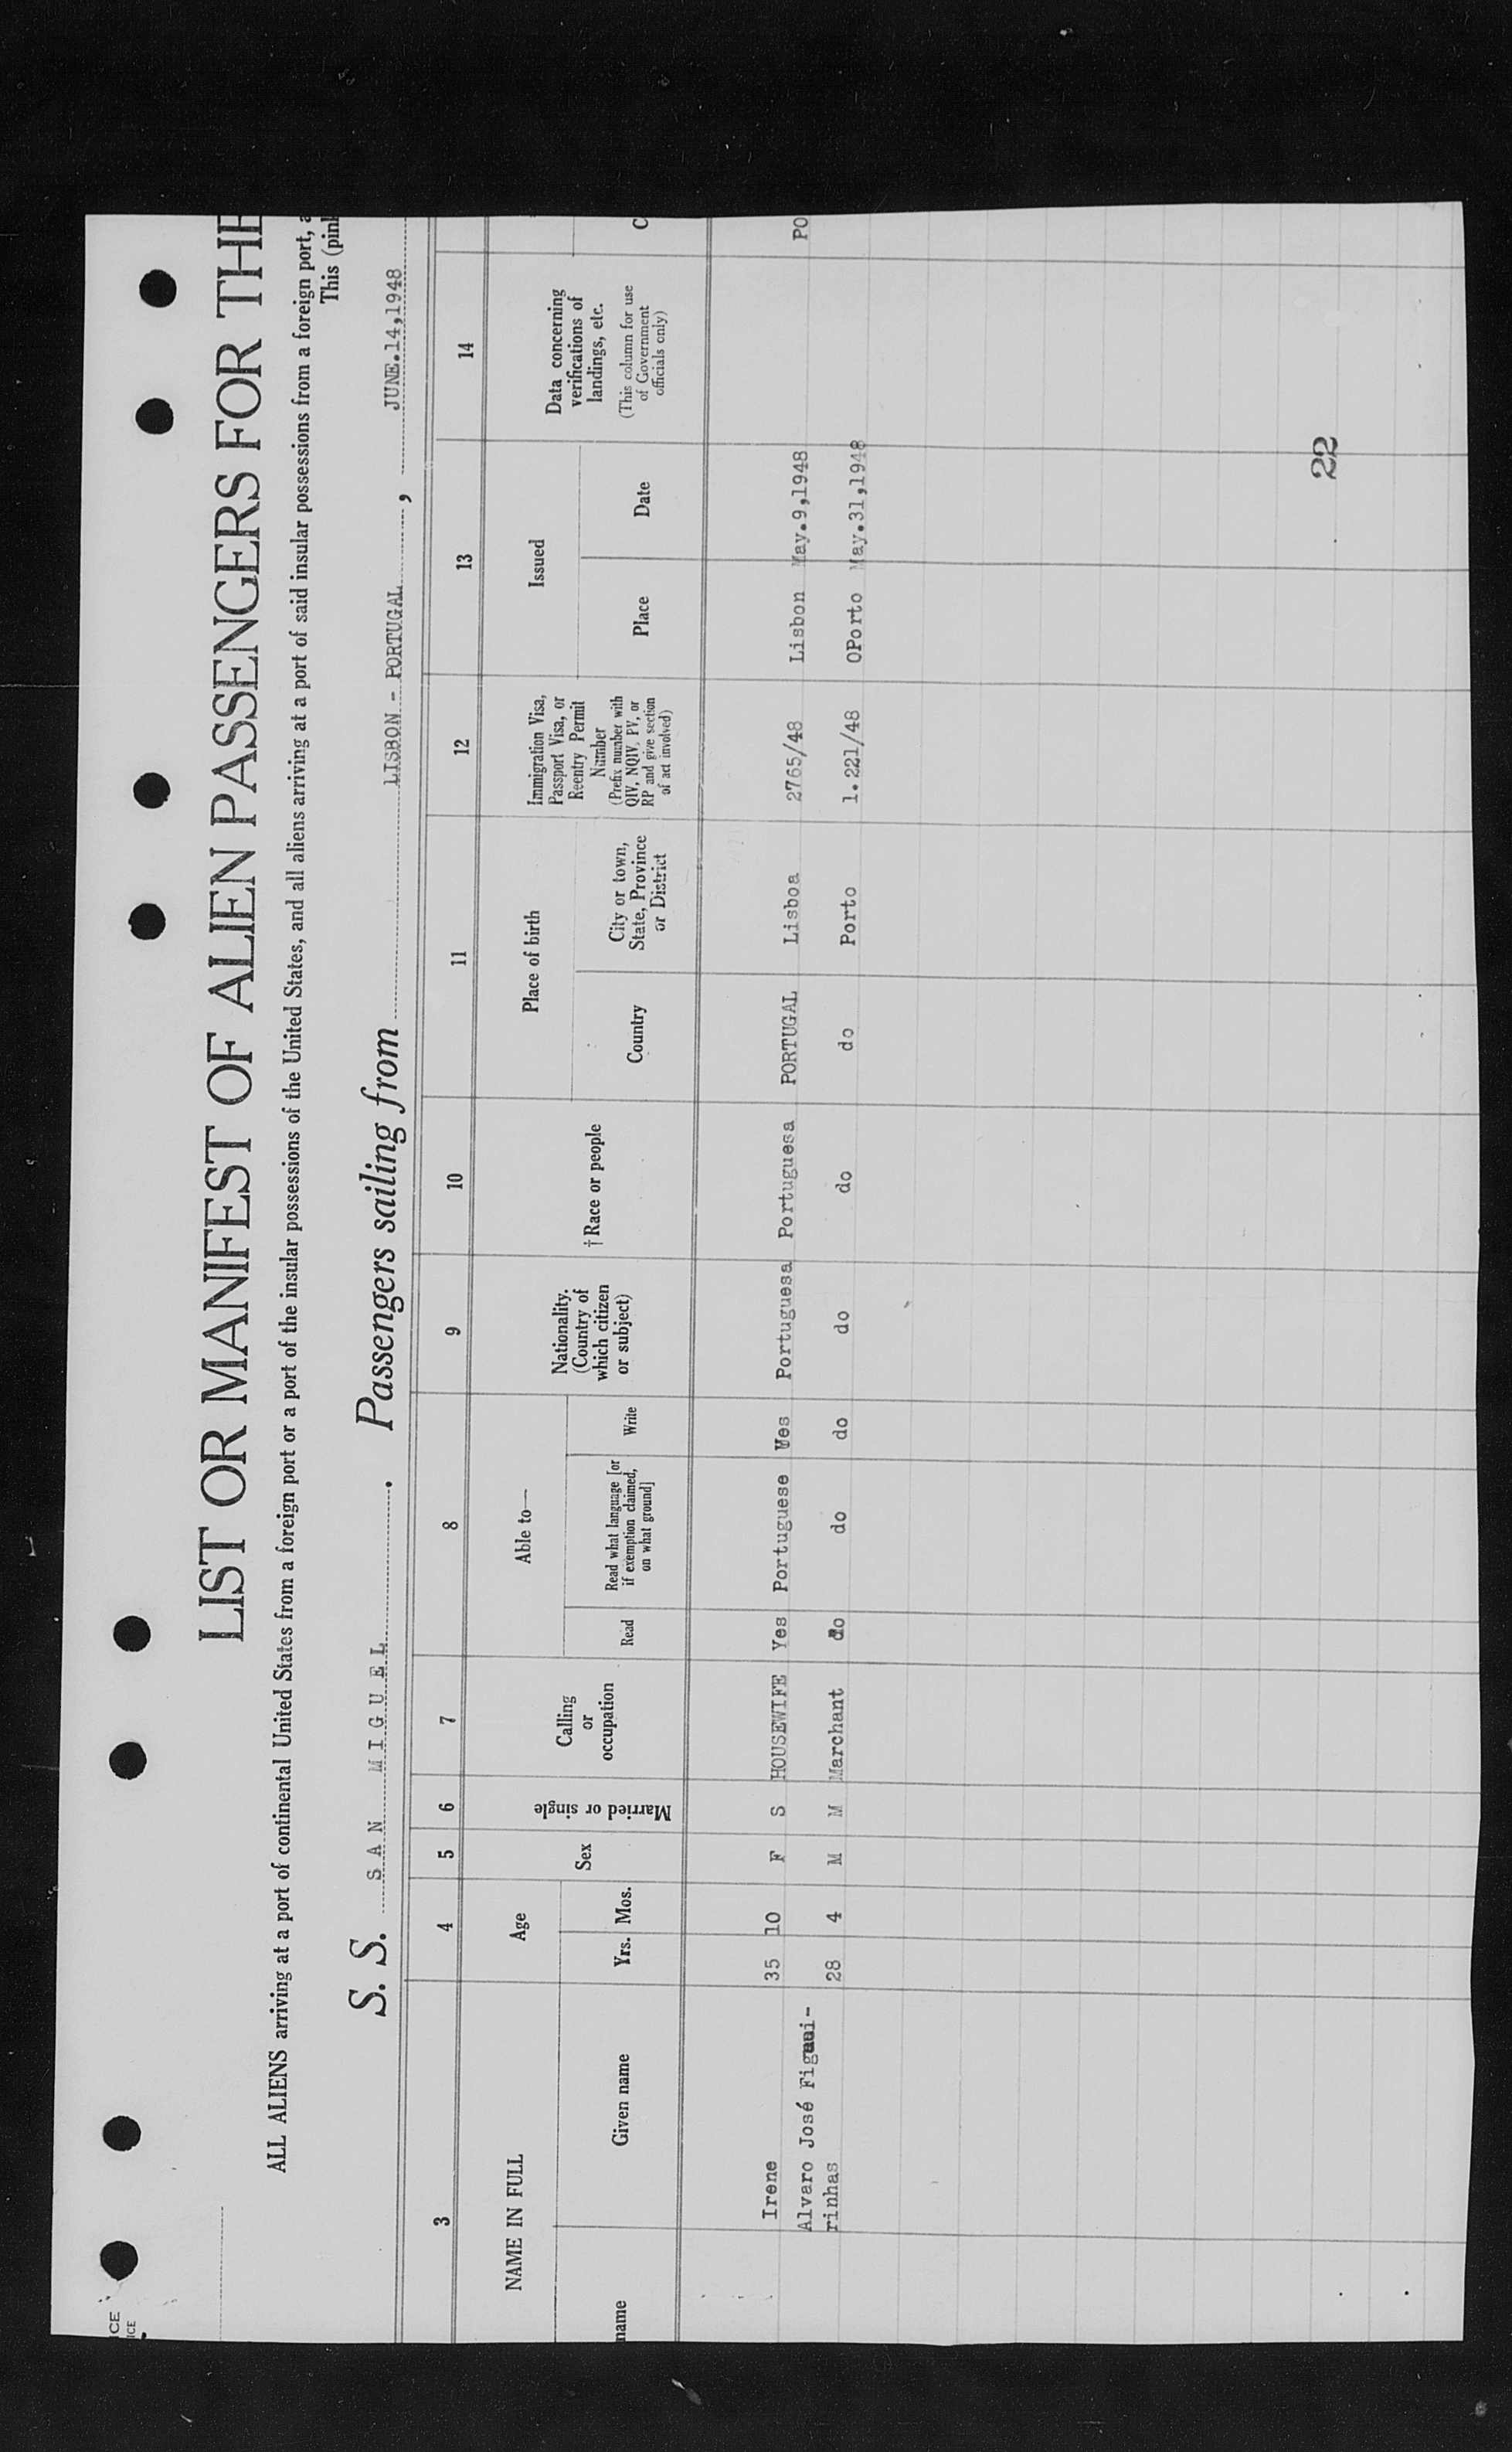 LIST OR MANIFEST OF ALIEN PASSENGERS FOR THE
ALL ALIENS arriving at a port of continental United States from a foreign port or a port of the insular possessions of the United States, and all aliens arriving at a port of said insular possessions from a foreign port, a
This (pink
S. S. SAN MIGUEL. Passengers sailing from LISBON - PORTUGAL, JUNE.14,1948
3 4 5 6 7 8 9 10 11 12 13 14
NAME IN FULL
name
Given name
Age
Yrs. Mos.
Sex
Married or single
Calling
or
occupation
Able to—
Read
Read what language [or
if exemption claimed,
on what ground]
Write
Nationality.
(Country of
which citizen
or subject)
†Race or people
Place of birth
Country
City or town,
State, Province
or District
Immigration Visa,
Passport Visa, or
Reentry Permit
Number
(Prefix number with
QIV, NQIV, PV, or
RP and give section
of act involved)
Issued
Place
Date
Data concerning
verifications of
landings, etc.
(This column for use
of Government
officials only)
C
Irene 35 10 F S HOUSEWIFE Yes Portuguese Yes Portuguesa Portuguesa PORTUGAL Lisboa 2765/48 Lisbon May.9,1948 PO
Alvaro José Figuei-
rinhas 28 4 M M Marchant do do do do do do Porto 1.221/48 OPorto May.31,1948
22
CE
ICE